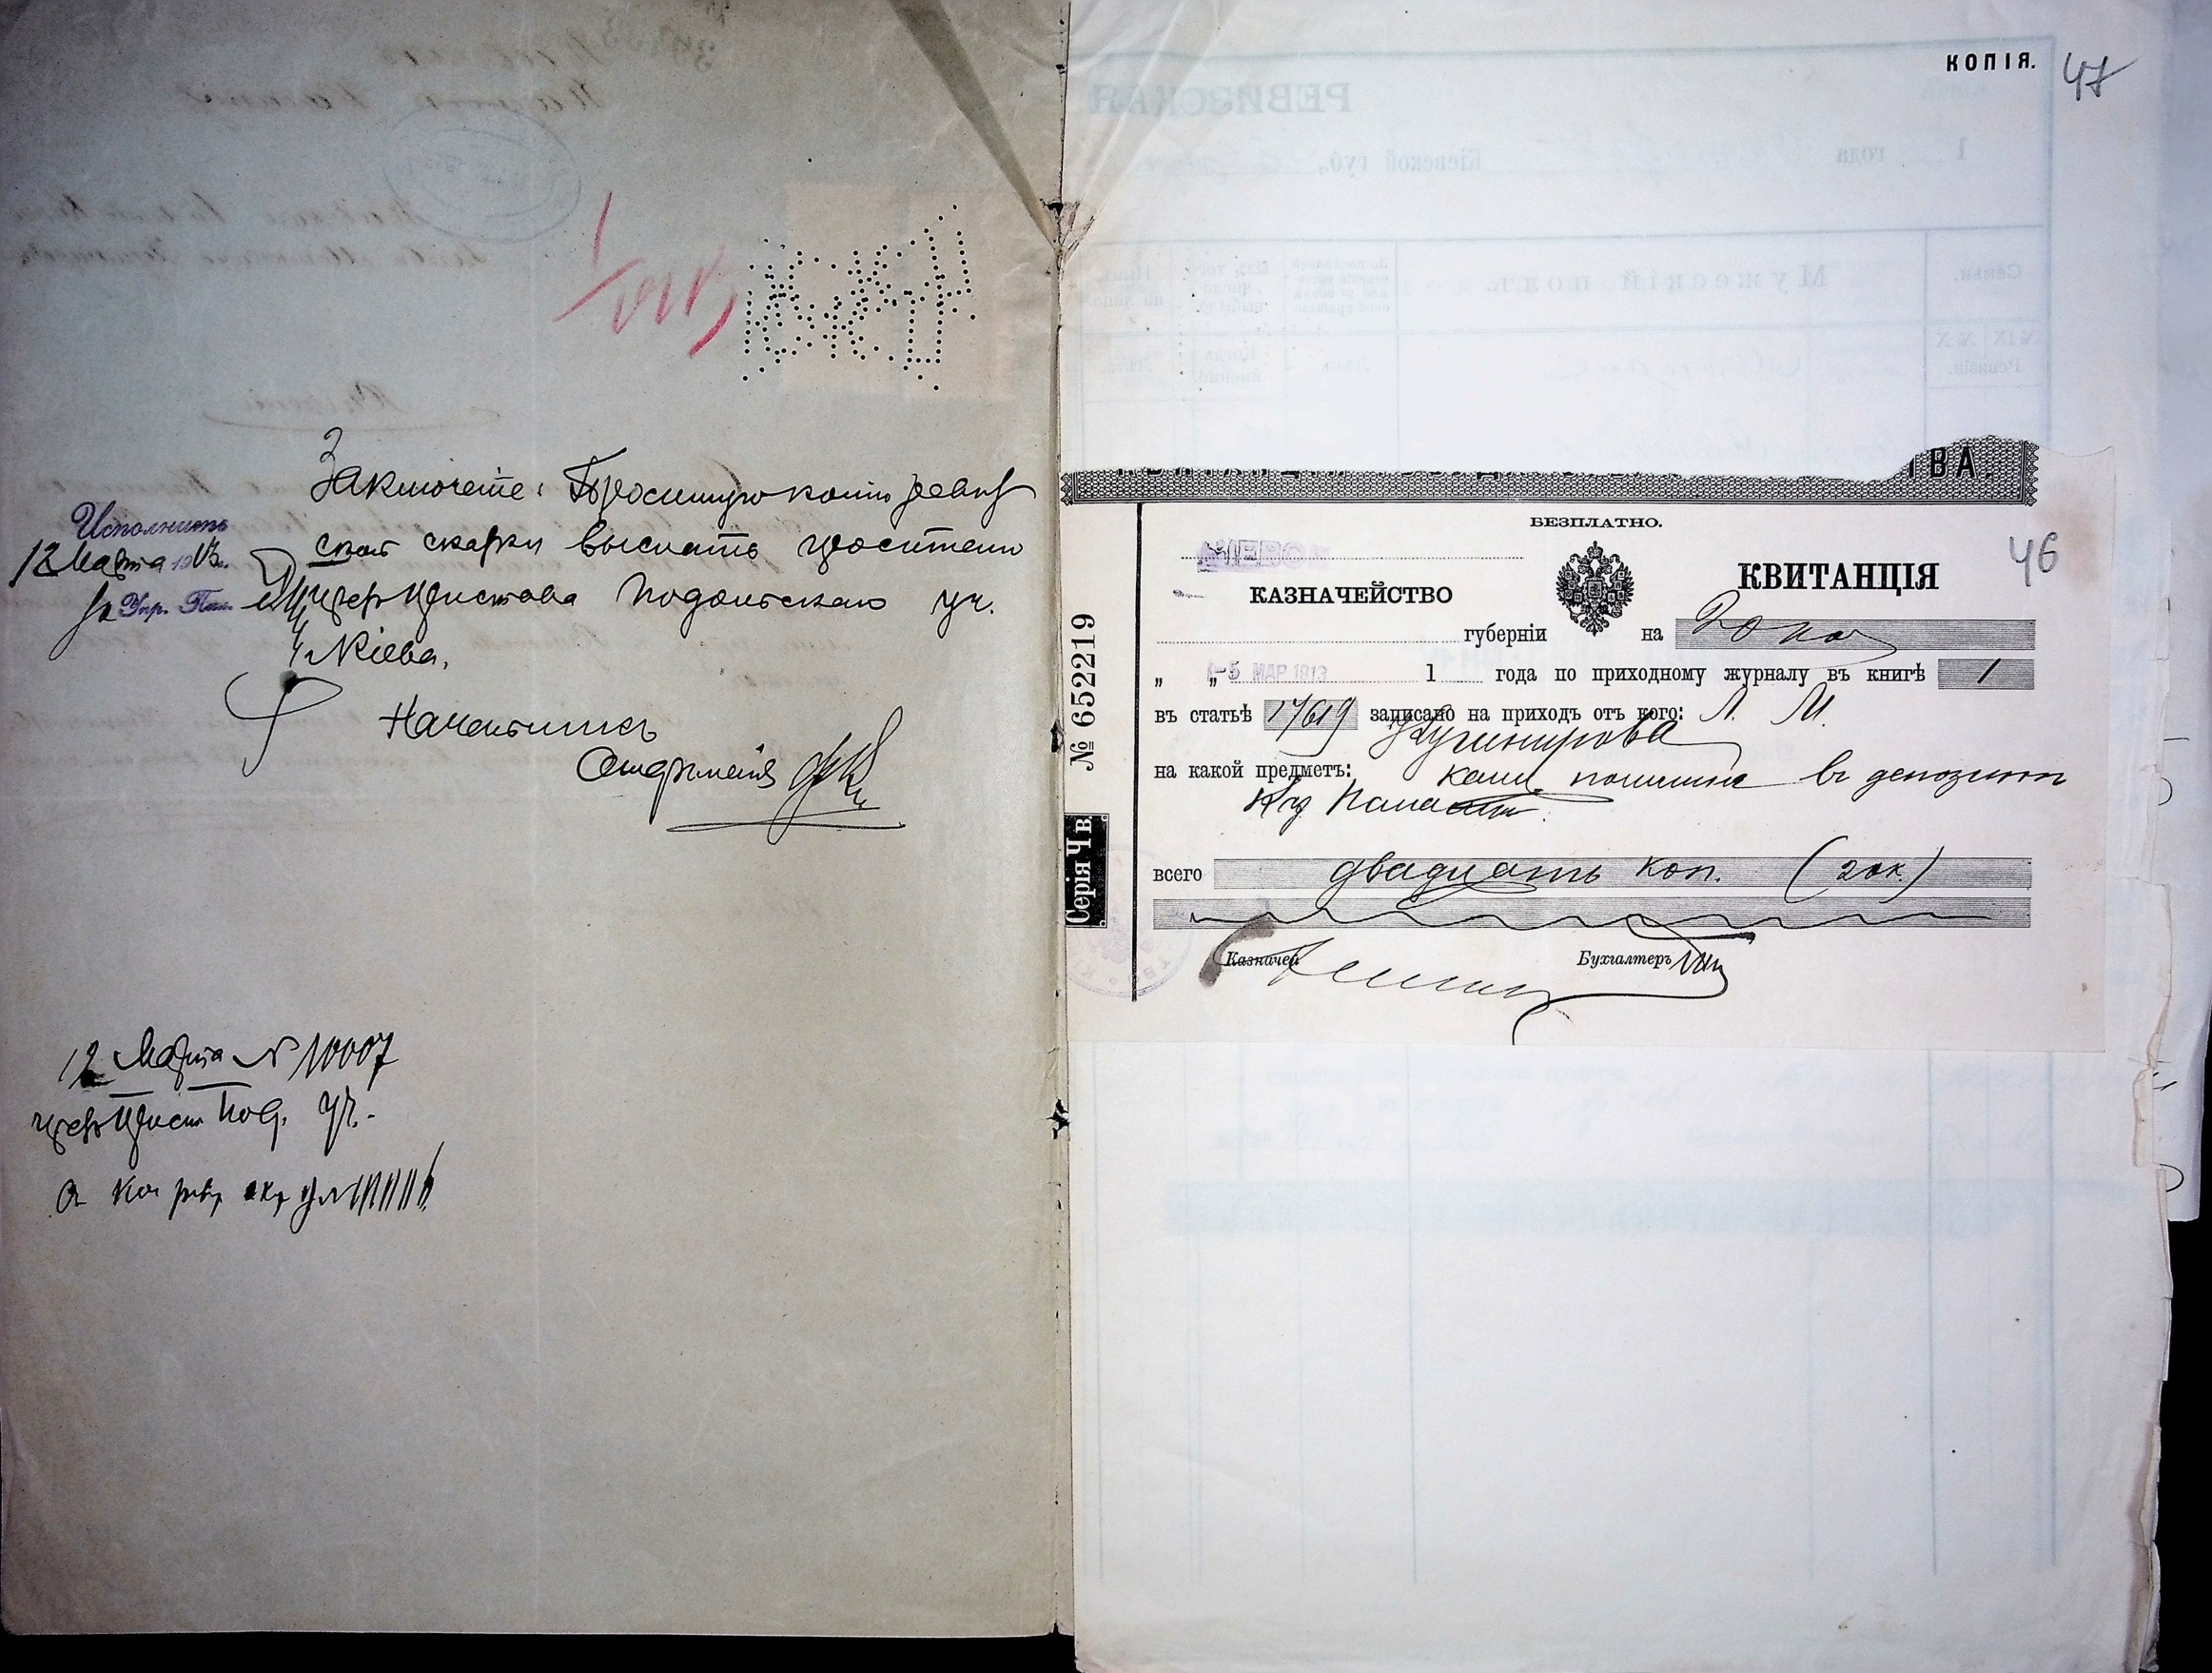 Заключеніе: Просимую копію ревиз
ской сказки выслать просителю
Исполнить
12 Марта 1913 г.
чрез Пристава Подольскаго уч.
За Упр. Пал.
г. Кіева.
Начальникъ
Отдѣленія
12 Марта № 10007
чрезъ Прист Под. уч.
КОПІЯ.
47
РЕВИЗСКАЯ
1 года
Кіевской губ.,
Мужескій полъ.
Семьи.
Ревизіи.
ВА.
БЕЗПЛАТНО.
46
КІЕВСК
КАЗНАЧЕЙСТВО
КВИТАНЦІЯ
губерніи на 20 коп
„ „ -5 МАР. 1913 1 года по приходному журналу въ книгѣ 1
въ статьѣ 17619 записано на приходъ отъ кого: Л. М.
Кушнирова
на какой предметъ: канц. пошлина въ депозитъ
Каз Палаты.
всего двадцать коп. (20 к.)
Казначей
Бухгалтеръ
№ 652219
Серія Ч в.